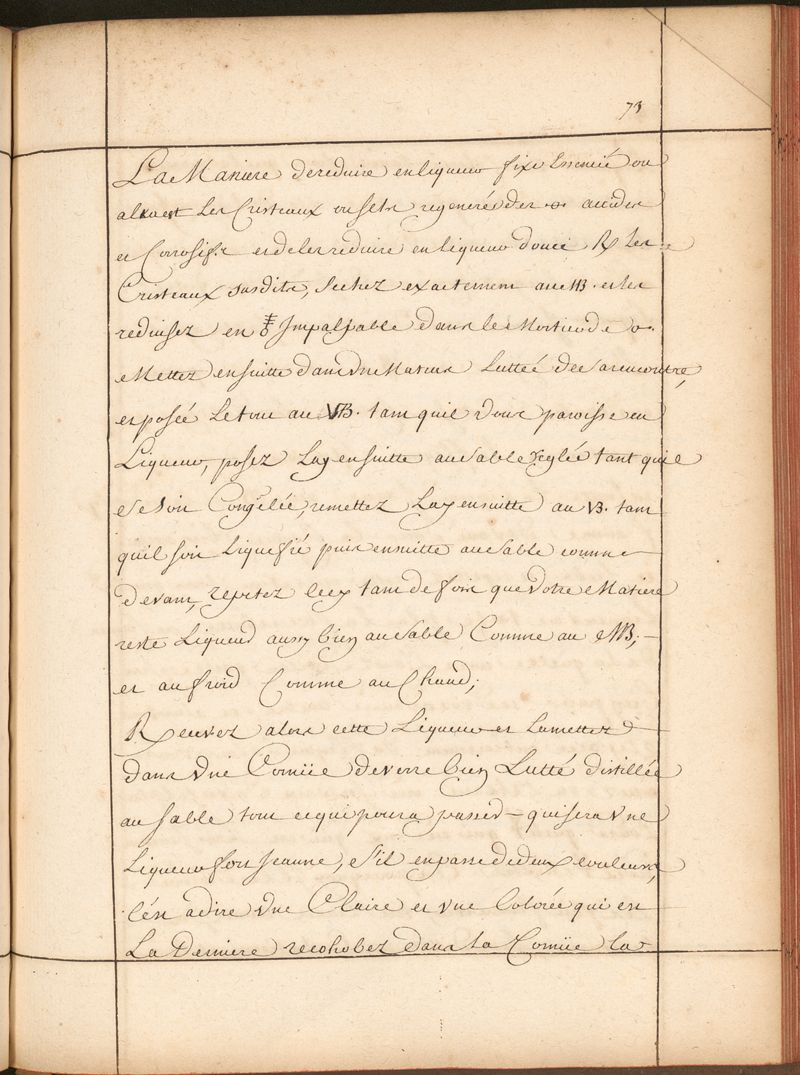 73
La Maniere de reduire en liqueur fixe Essencié ou
alkaest Les Cristeaux ou sels regenerés des acides
et Corrosifs et de les reduire en liqueur douce ℞ Les
Cristeaux susdits, sechez exactement au MB. et les
reduisez en Impalpable dans le Mortier de
Mettez ensuitte dans vne Matras Luttée de sa rencontre,
exposée Le tout au VB. tant quil vous paroisse en
Liqueur, posez Lay ensuitte au sable reglée tant quil
se soit Congelée, remettez Lay ensuitte au VB. tant
quil soit Liquefié puis ensuitte au sable comme
devant, repetez cecy tant de fois que votre Matiere
reste Liqueur aussy bien au sable Comme au MB;
et au froid Comme au Chaud;
Recevez alors cette Liqueur et La mettez
dans vne Cornüe de verre bien Lutté distillée
au sable tout ce qui poura passer qui sera vne
Liqueur fort Jeaune, s'il en passe de deux couleurs,
c'ést a dire vne Claire et vne Colorée qui est
La Derniere recohobez dans la Cornüe la